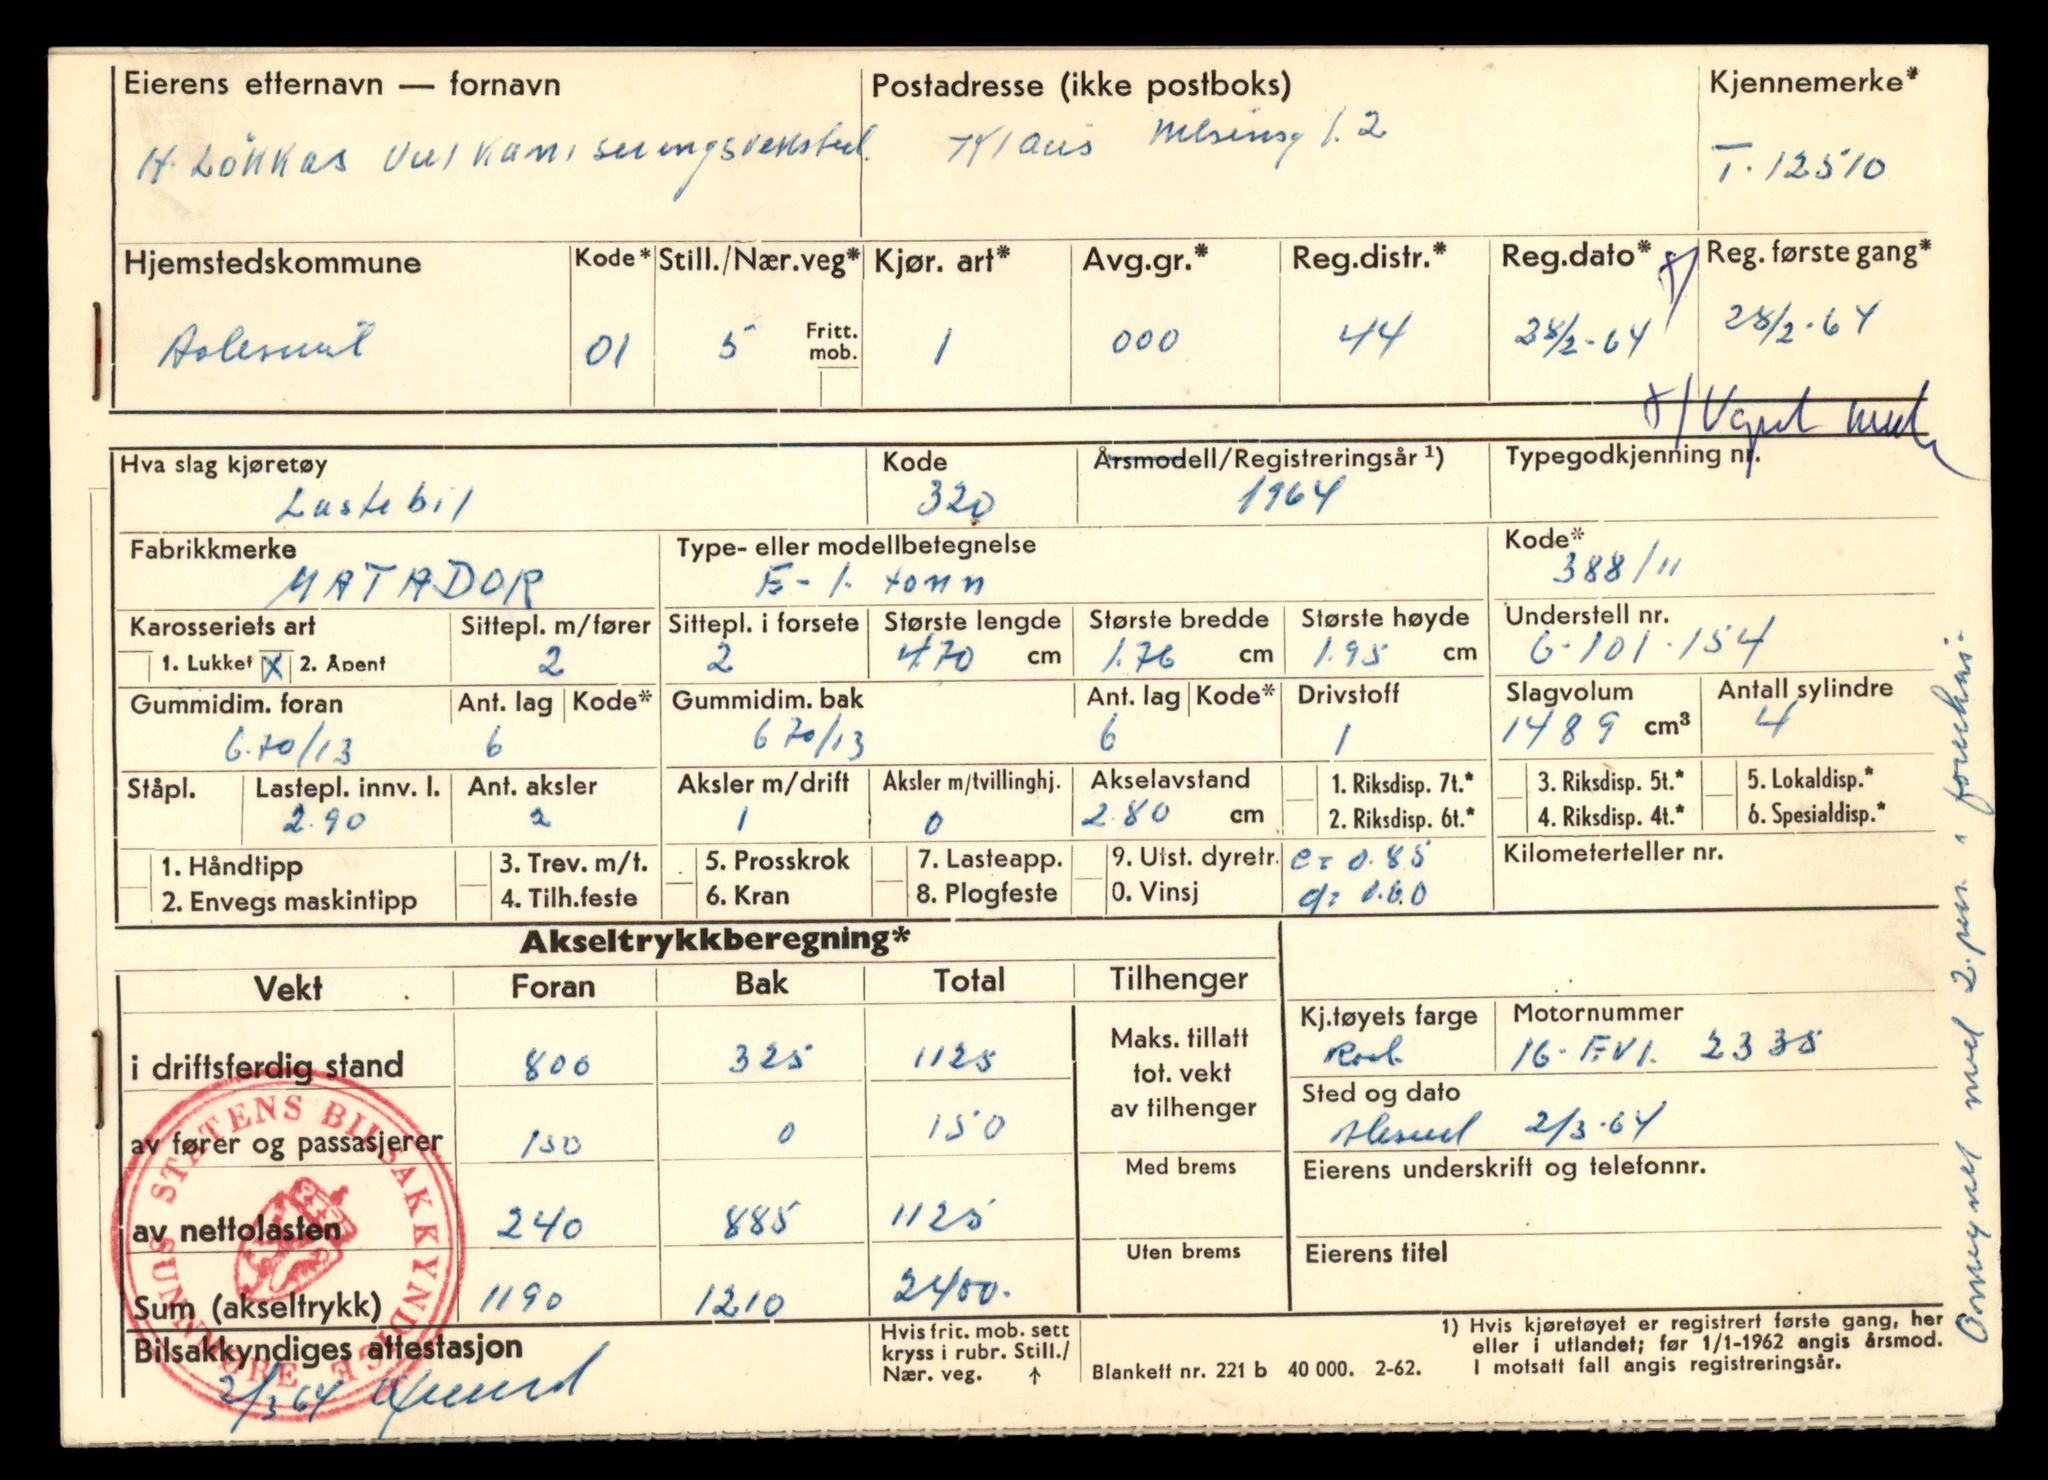 Eierens etternavn — fornavn
Postadresse (ikke postboks)
Kjennemerke*
H. Lökkas Vulkaniseringsverksted.
Klaus
T. 12510
Hjemstedskommune
Kode*
Still./Nær.veg*
Kjør. art*
Avg.gr.*
Reg.distr.*
Reg.dato*
Reg. første gang*
Aalesund
01
5
Fritt. mob.
1
000
44
28/2-64
28/2-64
Hva slag kjøretøy
Kode
Årsmodell/Registreringsår 1)
Typegodkjenning nr.
Lastebil
320
1964
Fabrikkmerke
Type- eller modellbetegnelse
Kode*
MATADOR
E-1. tonn
388/11
Karosseriets art
Sittepl. m/fører
Sittepl. i forsete
Største lengde
Største bredde
Største høyde
Understell nr.
1. Lukket X 2. Åpent
2
2
4.70 cm
1.76 cm
1.95 cm
6-101-154
Gummidim. foran
Ant. lag
Kode*
Gummidim. bak
Ant. lag
Kode*
Drivstoff
Slagvolum
Antall sylindre
6.70/13
6
670/13
6
1
1489 cm³
4
Ståpl.
Lastepl. innv. l.
Ant. aksler
Aksler m/drift
Aksler m/tvillinghj.
Akselavstand
1. Riksdisp. 7t.*
3. Riksdisp. 5t.*
5. Lokaldisp.*
2.90
2
1
0
2.80 cm
2. Riksdisp. 6t.*
4. Riksdisp. 4t.*
6. Spesialdisp.*
1. Håndtipp
3. Trev. m/t.
5. Prosskrok
7. Lasteapp.
9. Utst. dyretr.
e= 0.85
Kilometerteller nr.
2. Envegs maskintipp
4. Tilh.feste
6. Kran
8. Plogfeste
0. Vinsj
d= 0.60
Akseltrykkberegning*
Vekt
Foran
Bak
Total
Tilhenger
i driftsferdig stand
800
325
1125
Maks. tillatt
tot. vekt
av tilhenger
Kj.tøyets farge
Motornummer
16-EVI. 2335
av fører og passasjerer
150
0
150
Med brems
Sted og dato
Alesund 2/3-64
av nettolasten
240
885
1125
Uten brems
Eierens underskrift og telefonnr.
Eierens titel
Sum (akseltrykk)
1190
1210
2400.
Bilsakkyndiges attestasjon
2/3 64
Hvis frit. mob. sett
kryss i rubr. Still./
Nær. veg. ↑
Blankett nr. 221 b 40 000. 2-62.
1) Hvis kjøretøyet er registrert første gang, her
eller i utlandet; før 1/1-1962 angis årsmod.
I motsatt fall angis registreringsår.
STATENS BILSAKKYNDIGE
SUNNMØRE
med 2. pers i førerhus.